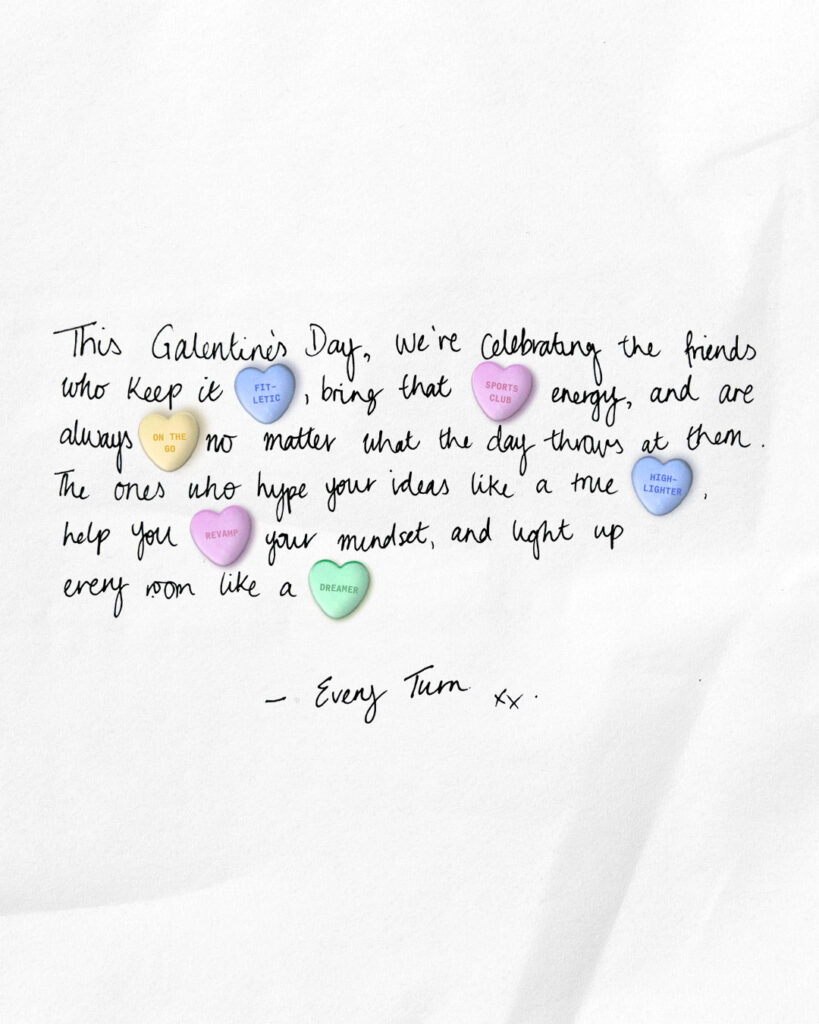 This Galentine's Day, we're celebrating the friends
who keep it FIT-LETIC, bring that SPORTS CLUB energy, and are
always ON THE GO no matter what the day throws at them.
The ones who hype your ideas like a true HIGH-LIGHTER,
help you REVAMP your mindset, and light up
every room like a DREAMER
– Every Turn xx.